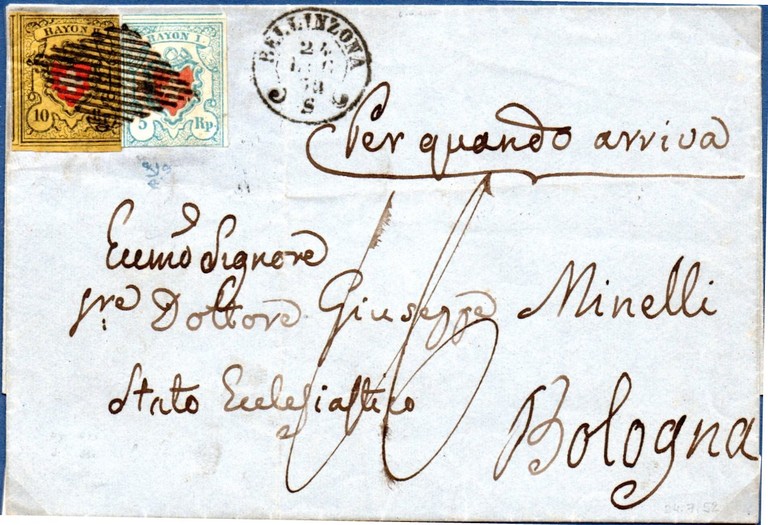 RAYON II
10
RAYON I
5 Rp.
BELLINZONA
24
S
Per quando arriva
16
Eccmo Signore
Dottore Giuseppe Minelli
Stato Ecclesiastico
Bologna